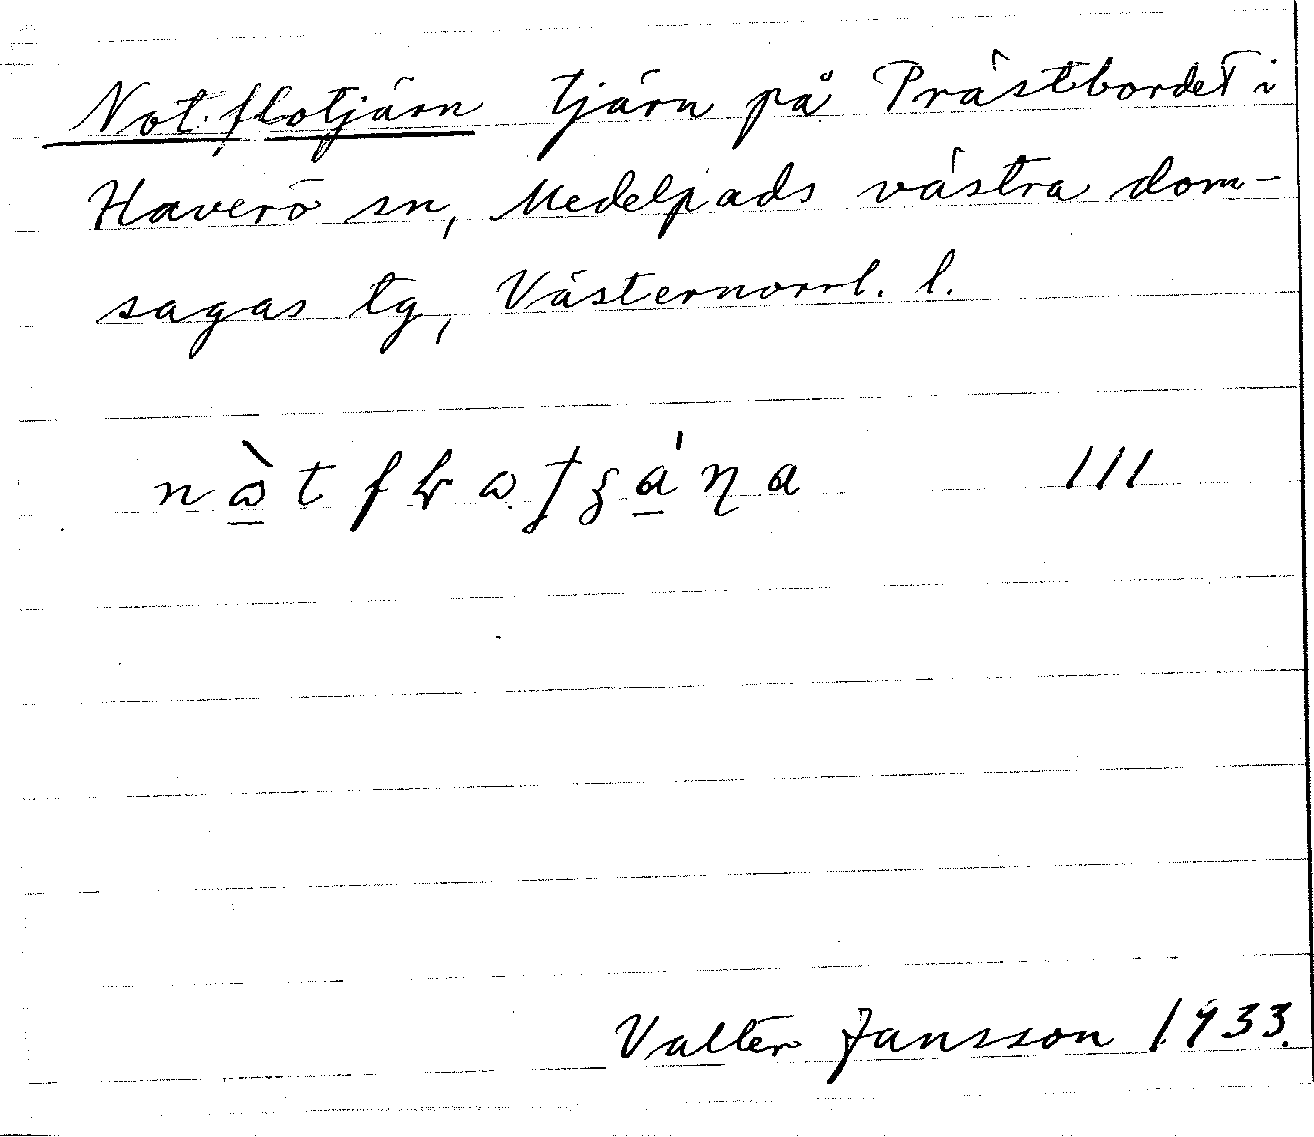 Notflotjärn tjärn på Prästbordet i
Haverö sn, Medelpads västra dom-
sagas tg, Västernorrl. l.
III
Valter Jansson 1933.